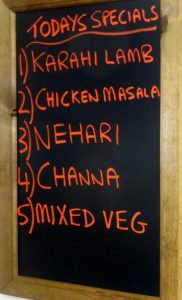 TODAYS SPECIALS
1) KARAHI LAMB
2) CHICKEN MASALA
3) NEHARI
4) CHANNA
5) MIXED VEG